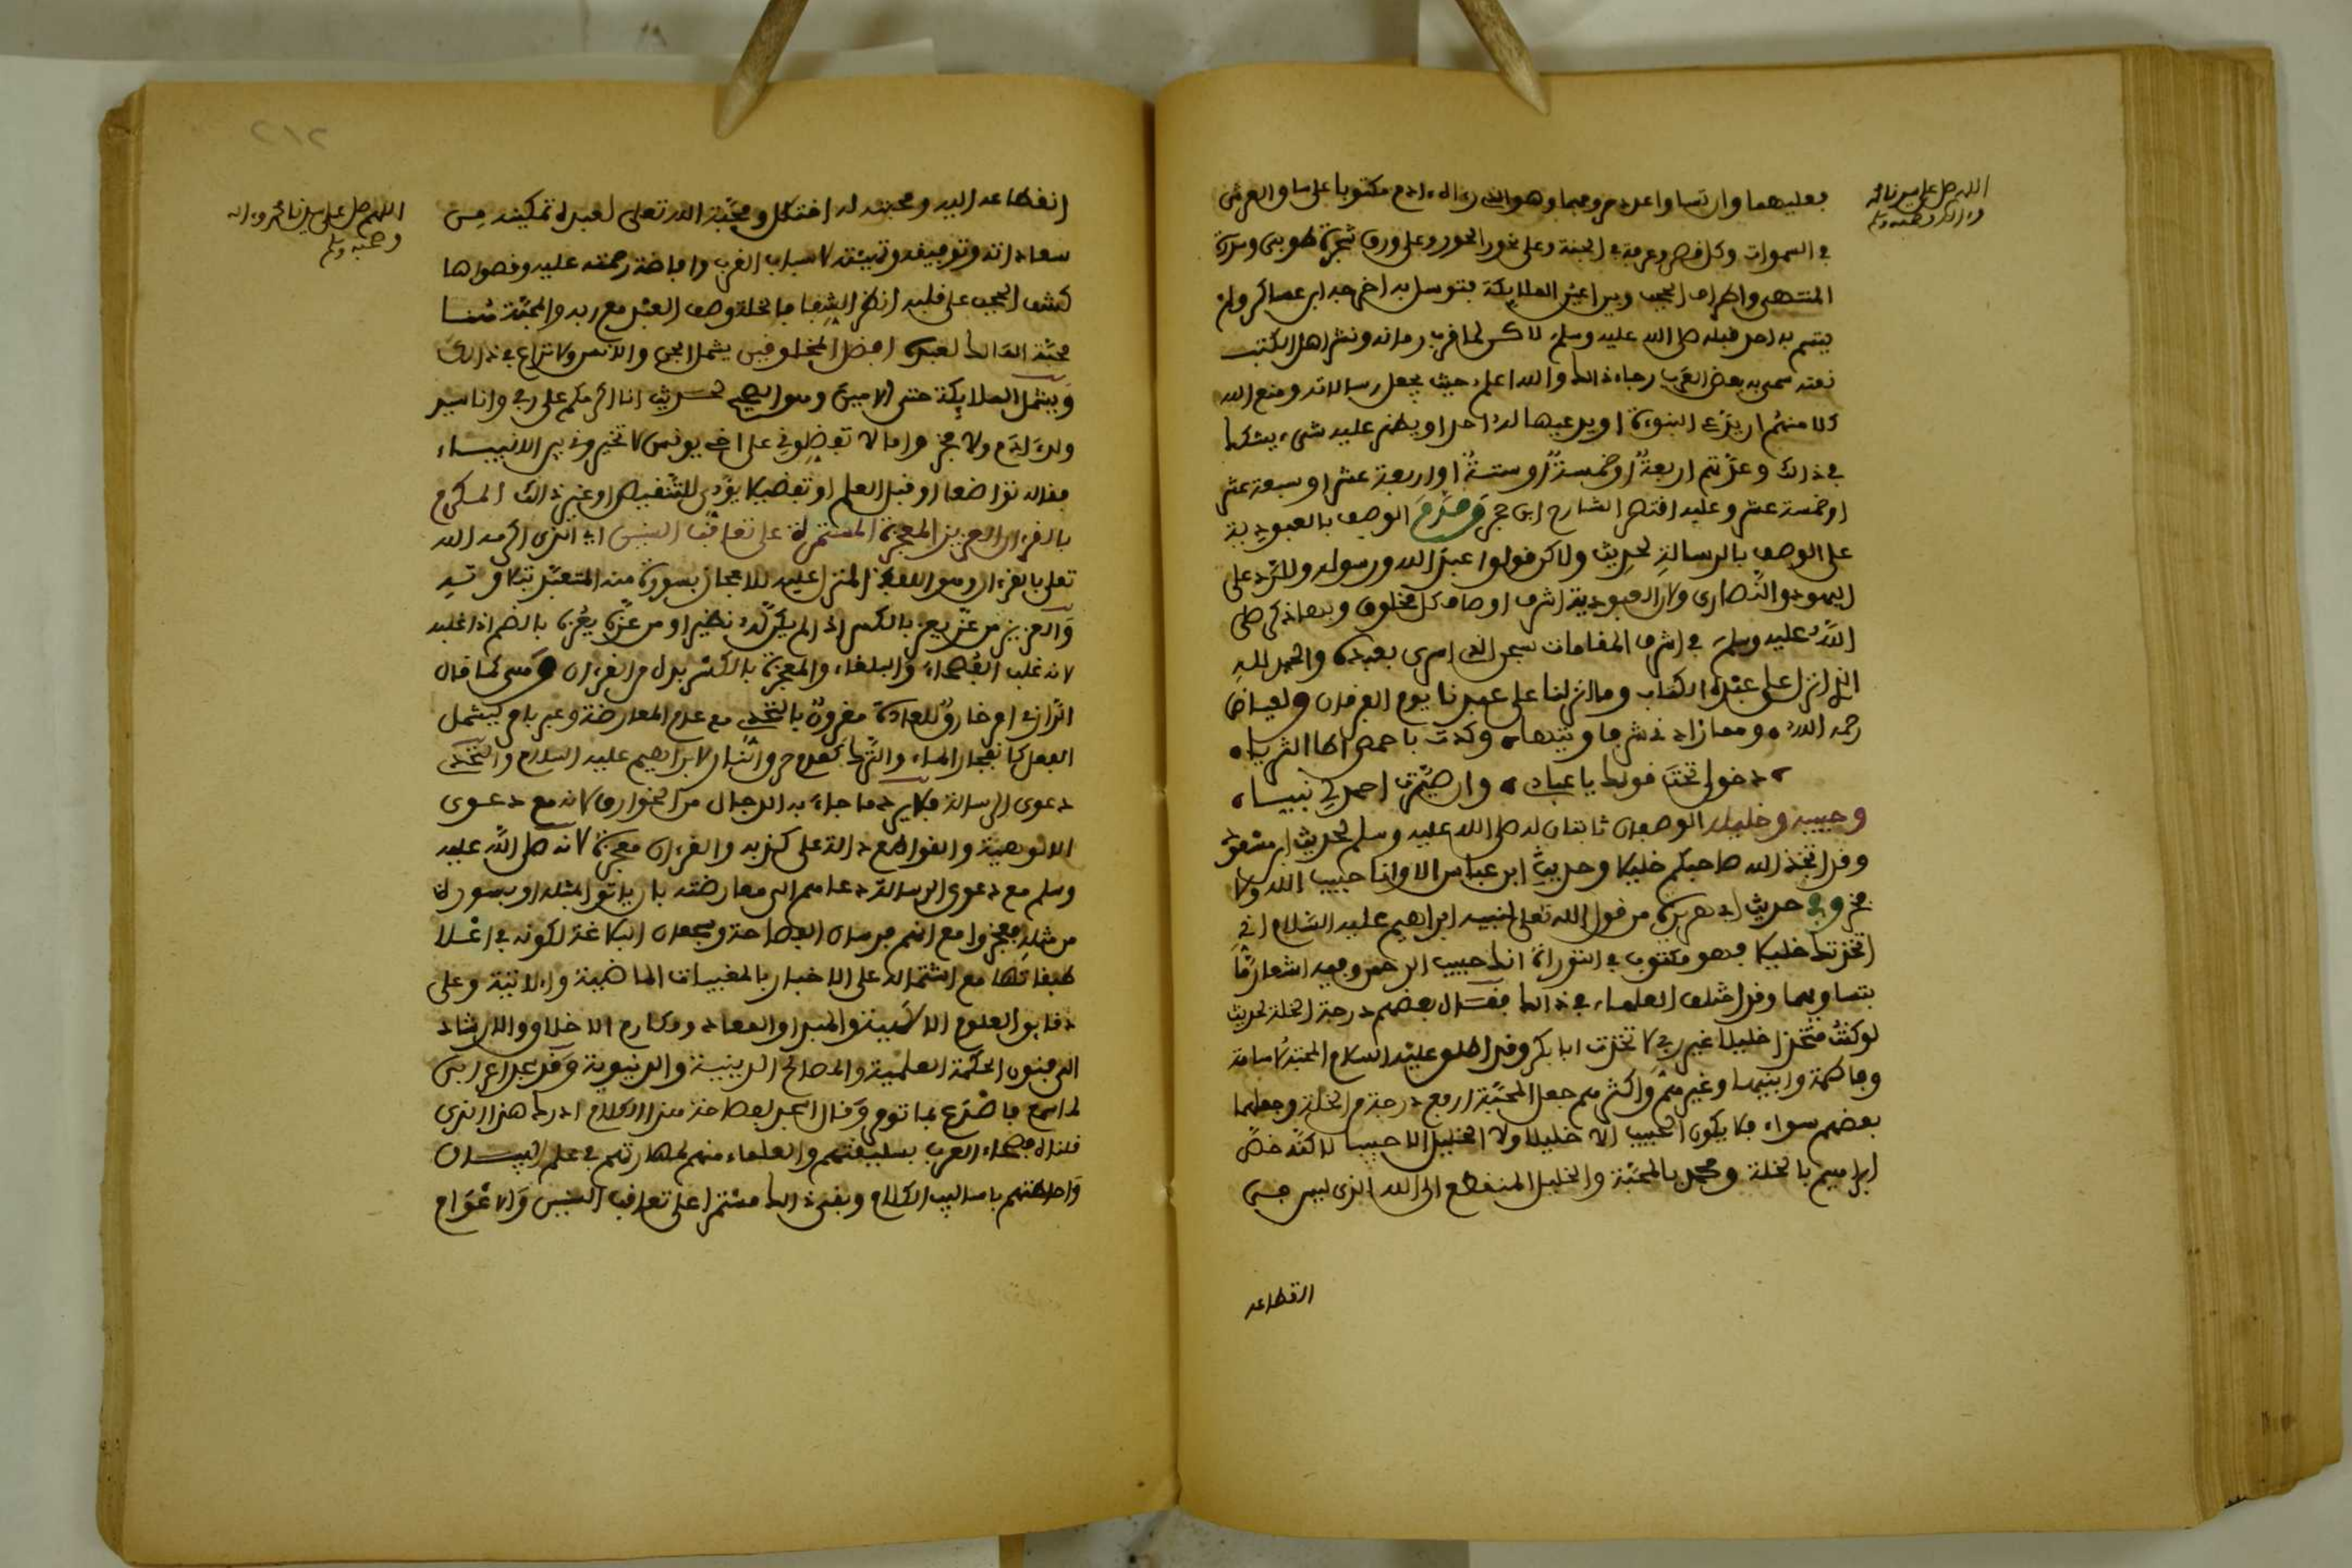 اللهم صل على سيدنا محمد
وءاله وصحبه وسلم
فعليهما وان تساوا عدد حروفهما وهو الذي رءاه ءادم مكتوبا على ساق العرش
في السموات وكل قصر وغرفة في الجنة وعلى نحور الحور وعلى ورق شجرة طوبى وسدرة
المنتهى واطراف الحجب وبين اعين الملايكة فتوسل به اخرجه ابن عساكر ولم
يتسم به احد قبله صلى الله عليه وسلم لاكن لما قرب زمانه ونشر اهل الكتب
نعته سمى به بعض العرب رجاء ذالك والله اعلم حيث يجعل رسالاته ومنع الله
كلا منهم ان يدعي النبوة او يدعيها له احد او يظهر عليه شيء يشكك
في ذالك وعدتهم اربعة او خمسة او ستة او اربعة عشر او سبعة عشر
او خمسة عشر وعليه اقتصر الشارح ابن حجر وقدم الوصف بالعبودية
على الوصف بالرسالة لحديث ولاكن قولوا عبد الله ورسوله وللرد على
اليهود والنصارى ولان العبودية اشرف اوصاف كل مخلوق وبها ذكر صلى
الله عليه وسلم في اشرف المقامات سبحن الذي اسرى بعبده والحمد لله
الذي انزل على عبده الكتاب وما انزلنا على عبدنا يوم الفرقان ولعياض
رحمه الله ومما زادني شرفا وتيها وكدت باخمصي اطا الثريا
دخولي تحت قولك يا عبادي وان صيرت احمد لي نبيا
وحبيبه وخليله الوصفان ثابتان له صلى الله عليه وسلم لحديث ابن مسعود
وقد اتخذ الله صاحبكم خليلا وحديث ابن عباس الا وانا حبيب الله ولا
فخر وفي حديث ابي هريرة من قول الله تعلى لنبيه ابراهيم عليه السلام اني
اتخذتك خليلا فهو مكتوب في التوراة انك حبيب الرحمن وفيه اشعار
بتساويهما وقد اختلف العلماء في ذالك فقال بعضهم درجة الخلة لحديث
لو كنت متخذا خليلا غير ربي لاتخذت ابا بكر وقد اطلق عليه السلام المحبة لاسامة
وفاطمة وابنيها وغيرهم واكثرهم جعل المحبة ارفع درجة من الخلة وجعلهما
بعضهم سواء فلا يكون الحبيب الا خليلا ولا الخليل الا حبيبا لاكنه خص
ابراهيم بالخلة ومحمد بالمحبة والخليل المنقطع الى الله الذي ليس في
انقطاعه
٢١٢
اللهم صل على سيدنا محمد وءاله
وصحبه وسلم
انقطاعه اليه ومحبته له اختلال ومحبة الله تعلى لعبده تمكينه من
سعادته وتوفيقه وتهيئته لاسباب القرب وافاضة رحمته عليه وقصواها
كشف الحجب على قلبه انظر الشفا فالخلة وصف العبد مع ربه والمحبة منشا
محبة الله لعبده افضل المخلوقين يشمل الجن والانس ولا نزاع في ذالك
ويشمل الملايكة حتى الامين وهو الصحيح لحديث انا اكرمكم على ربي وانا سيد
ولد ءادم ولا فخر واما لا تفضلوني على اخي يونس لا تخيروني بين الانبياء
فقاله تواضعا او قبل العلم او تفضيلا يؤدي للتنقيص او غير ذالك المكرم
بالقرءان العزيز المعجزة المستمرة على تعاقب السنين اي الذي اكرمه الله
تعلى بالقرءان وهو اللفظ المنزل عليه للاعجاز بسورة منه المتعبد بتلاوته
والعزيز من عز يعز بالكسر اذا لم يكن له نظير او من عزه يعزه بالضم اذا غلبه
لانه غلب الفصحاء والبلغاء والمعجزة بالكسر بدل من القرءان وهي كما قال
الرازي امر خارق للعادة مقرون بالتحدي مع عدم المعارضة وعبر بامر ليشمل
الفعل كانفجار الماء والترك كعدم حرق النار لابراهيم عليه السلام والتحدي
دعوى الرسالة فلا يرد ما جاء به الدجال من الخوارق لانه مع دعوى
الالوهية والقواطع دالة على كذبه والقرءان معجزة لانه صلى الله عليه
وسلم مع دعوى الرسالة دعاهم الى معارضته بان ياتوا بمثله او بسورة
من مثله فعجزوا مع انهم فرسان الفصاحة وفحول البلاغة لكونه في اعلا
طبقاتها مع اشتماله على الاخبار بالمغيبات الماضية والاتية وعلى
دقايق العلوم الالهية والمبدا والمعاد ومكارم الاخلاق والارشاد
الى فنون الحكمة العلمية والمصالح الدينية والدنيوية وقد سجد اعرابي
لما سمع فاصدع بما تومر وقال اسجد لفصاحة هذا الكلام ادرك هذا الذي
قلناه فصحاء العرب بسليقتهم والعلماء منهم لمهارتهم في علم البيان
واحاطتهم باساليب الكلام وبقي ذالك مستمرا على تعاقب السنين والاعوام